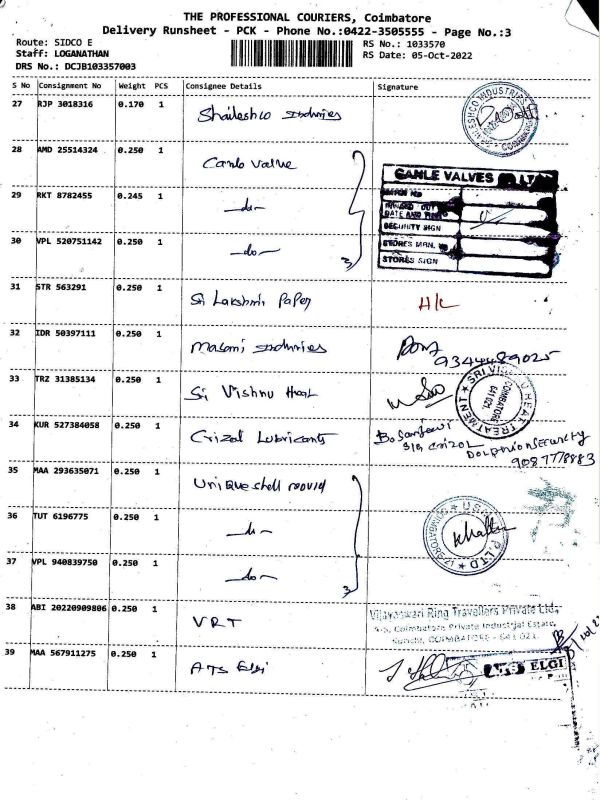 THE PROFESSIONAL COURIERS, Coimbatore
Delivery Runsheet - PCK - Phone No.:0422-3505555 - Page No.:3
Route: SIDCO E
RS No.: 1033570
Staff: LOGANATHAN
RS Date: 05-Oct-2022
DRS No.: DCJB103357003
S No Consignment No Weight PCS Consignee Details Signature
27 RJP 3018316 0.170 1 Shaileshco Industries
28 AMD 25514324 0.250 1 Canle Valve
CANLE VALVES
29 RKT 8782455 0.245 1 -do-
DATE AND TIME
SECURITY SIGN
30 VPL 520751142 0.250 1 -do- 3
STORES SIGN
31 STR 563291 0.250 1 Sri Lakshmi Paper H/L
32 IDR 50397111 0.250 1 Masomi Industries
9344489025
33 TRZ 31385134 0.250 1 Sri Vishnu Heat
SRI VISHNU HEAT TREATMENT
COIMBATORE
641 021
34 KUR 527384058 0.250 1 Crizol Lubricants
Dolphion Security
9087778883
35 MAA 293635071 0.250 1 Unique shell mould
36 TUT 6196775 0.250 1 -do-
37 VPL 940839750 0.250 1 -do- 3
38 ABI 20220909806 0.250 1 VRT
Vijayeswari Ring Travellers Private Ltd.
Coimbatore Private Industrial Estate,
COIMBATORE - 641 021.
39 MAA 567911275 0.250 1 ATS Elgi
ATS ELGI